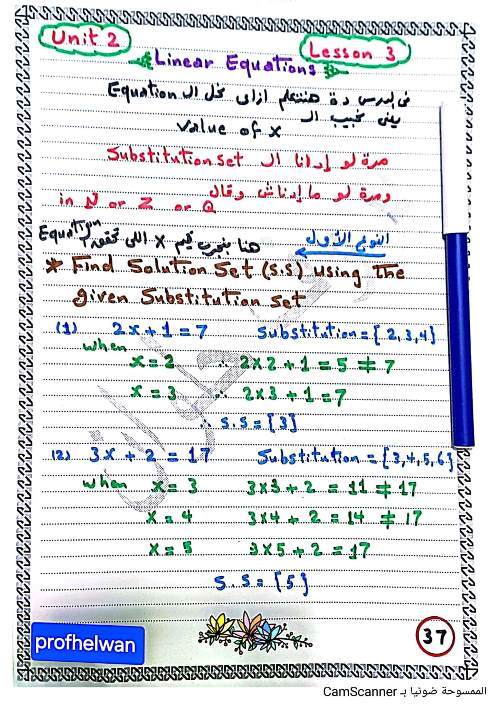 Unit 2
Lesson 3
Linear Equations
فى الدرس دة هنتعلم ازاى نحل الـ Equation
يعنى نجيب الـ
value of x
مرة لو إدانا الـ Substitution set
ومرة لو ما إدناش وقال
in N or Z or Q
النوع الأول
هنا بنجرب قيم x اللى تحقق Equation
* Find Solution Set (S.S) using the
given Substitution set
(1) 2x + 1 = 7 Substitution = { 2, 3, 4}
when
x = 2 ∴ 2×2 + 1 = 5 ≠ 7
x = 3 ∴ 2×3 + 1 = 7
∴ S.S = {3}
(2) 3x + 2 = 17 Substitution = {3,4,5,6}
when x = 3 3×3 + 2 = 11 ≠ 17
x = 4 3×4 + 2 = 14 ≠ 17
x = 5 3×5 + 2 = 17
S.S = {5}
profhelwan
37
الممسوحة ضوئيا بـ CamScanner